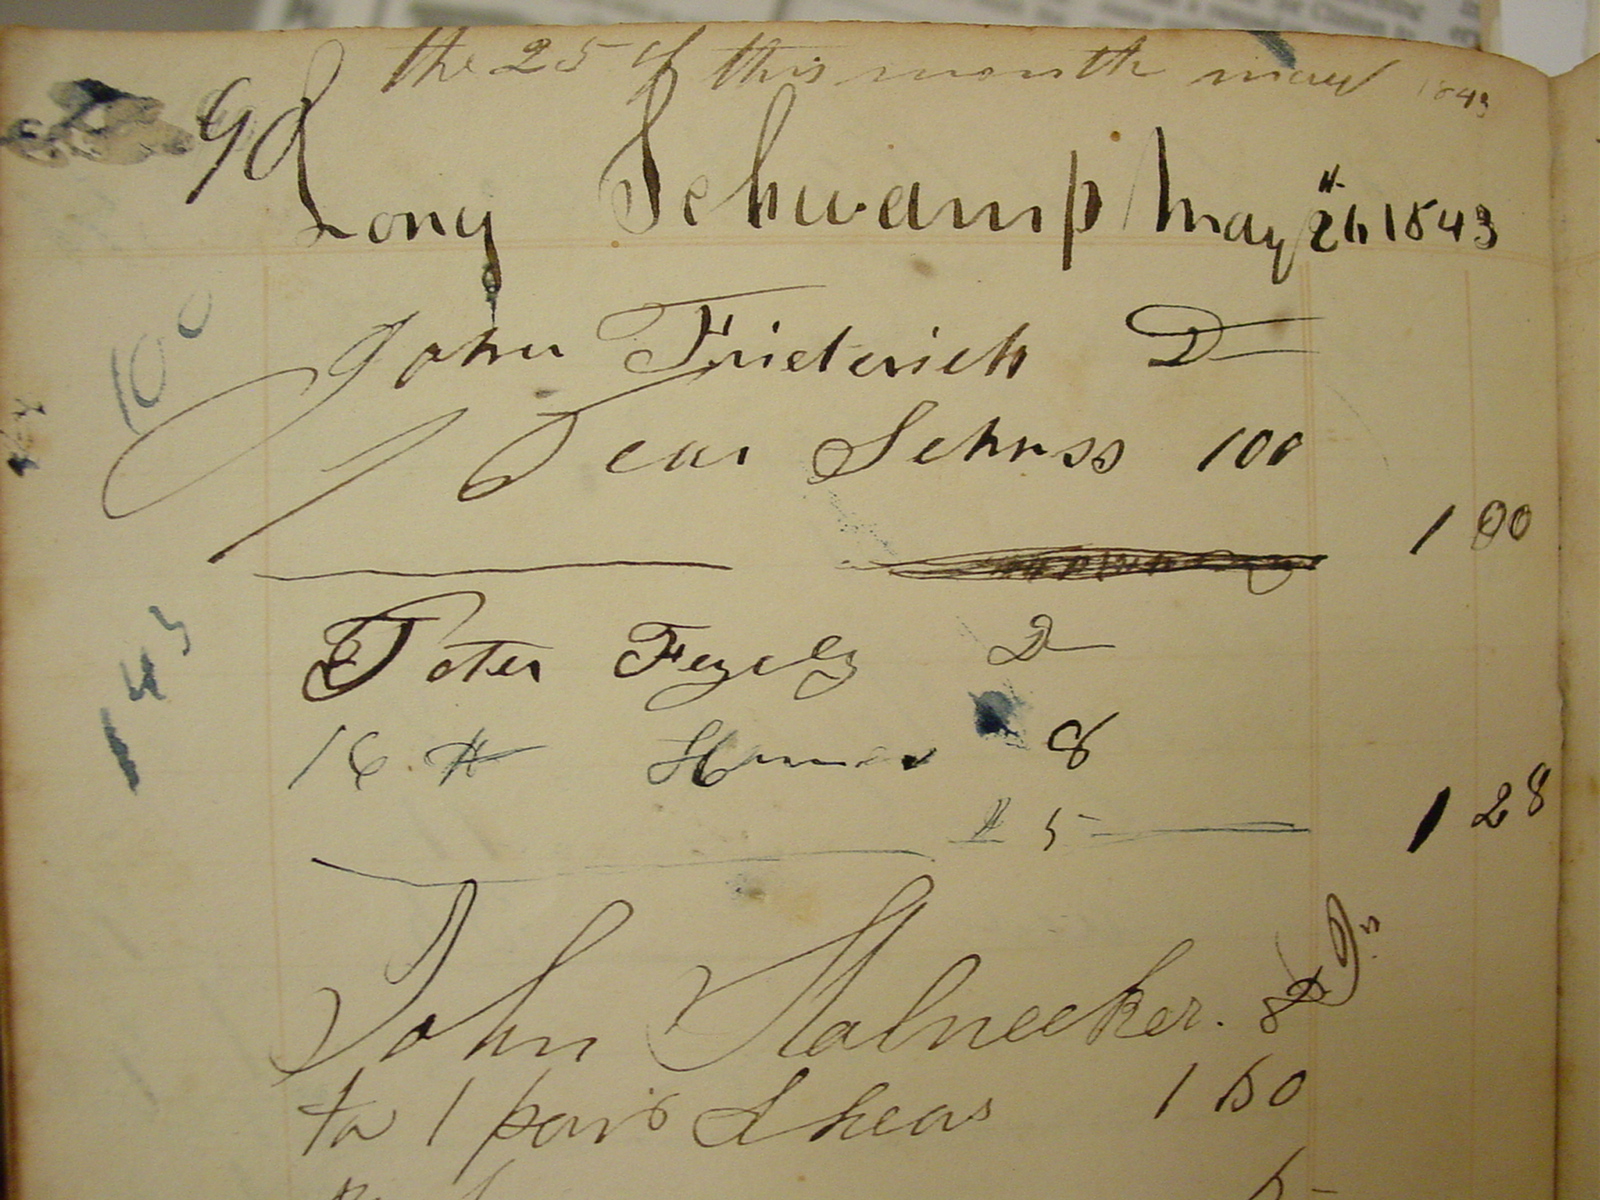 the 25 of this month may 1843
90
Long Schwamp May 26 1843
John Friederich D
100
1 Pear Schuss 100
1 00
Peter Fegely D
143
16 # Hamer 8
# 5
1 28
John Stalnecker. Dr
to 1 pair Shears 1 50